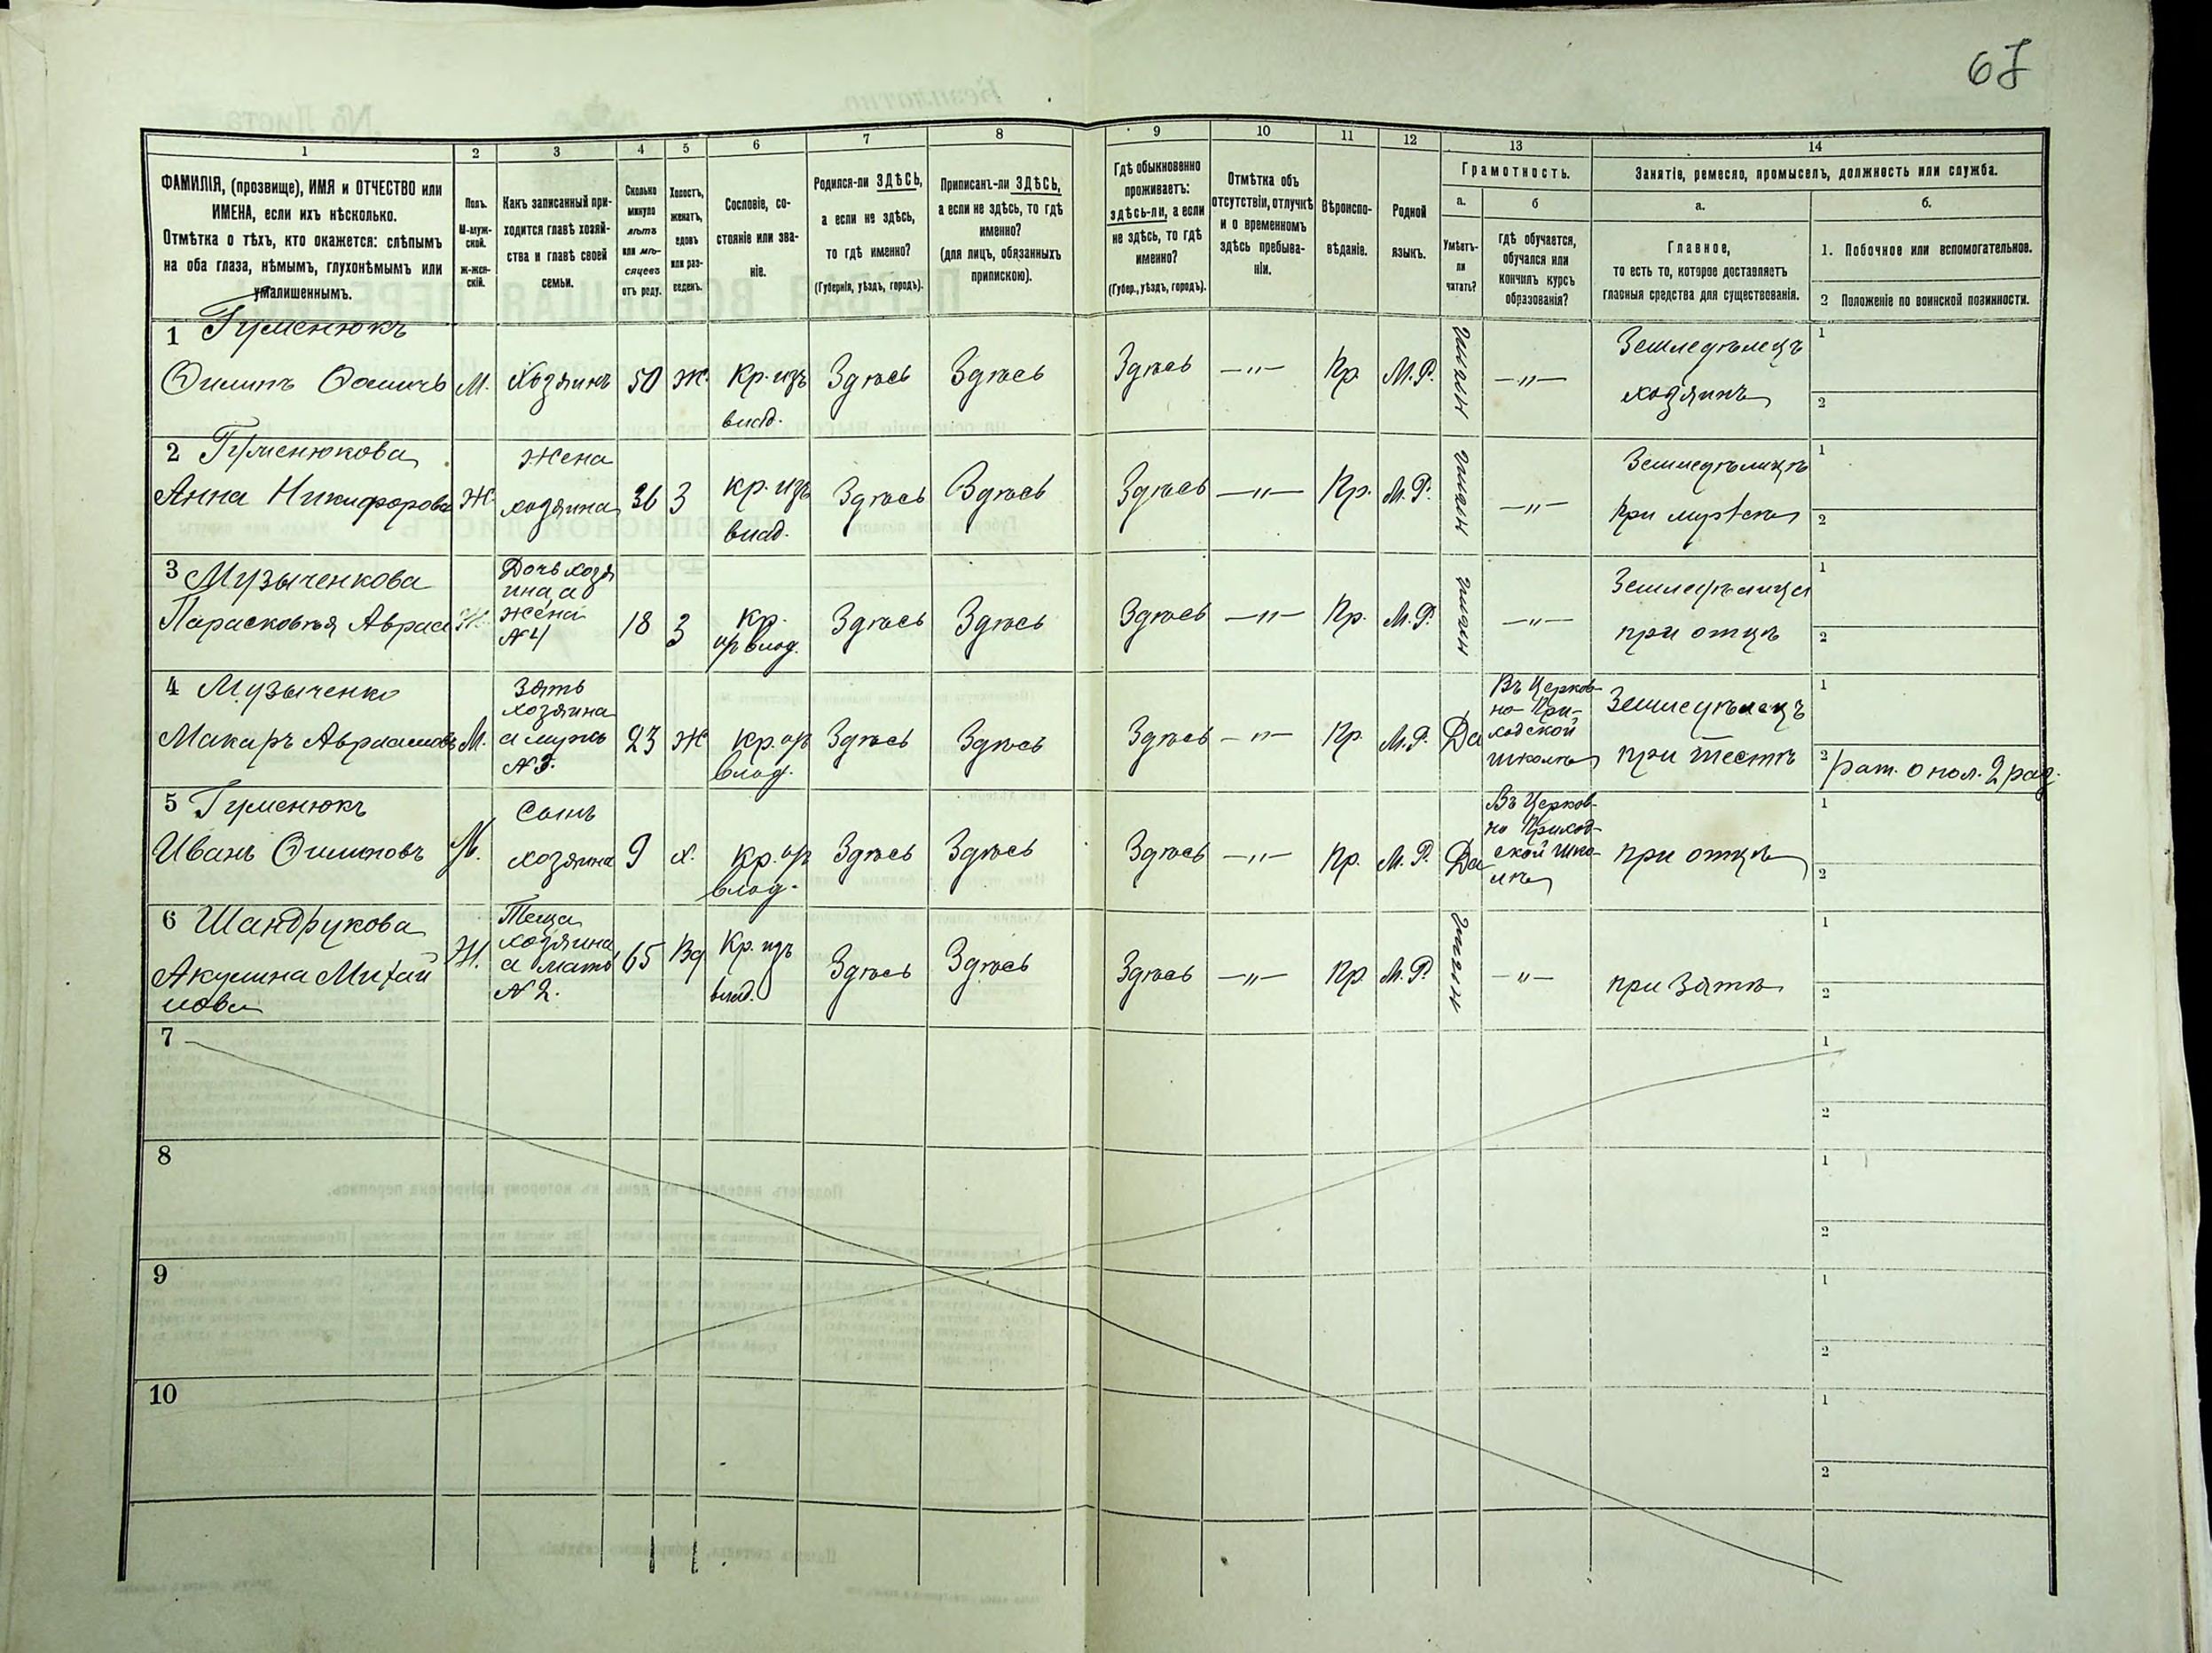 67
1 2 3 4 5 6 7 8 9 10 11 12 13 14
ФАМИЛІЯ, (прозвище), ИМЯ и ОТЧЕСТВО или
ИМЕНА, если ихъ нѣсколько.
Отмѣтка о тѣхъ, кто окажется: слѣпымъ
на оба глаза, нѣмымъ, глухонѣмымъ или
умалишеннымъ.
Полъ.
М-муж-
ской.
ж-жен-
скій.
Какъ записанный при-
ходится главѣ хозяй-
ства и главѣ своей
семьи.
Сколько
минуло
лѣтъ
или мѣ-
сяцевъ
отъ роду.
Холостъ,
женатъ,
вдовъ
или раз-
веденъ.
Сословіе, со-
стояніе или зва-
ніе.
Родился-ли ЗДѢСЬ,
а если не здѣсь,
то гдѣ именно?
(Губернія, уѣздъ, городъ).
Приписанъ-ли ЗДѢСЬ,
а если не здѣсь, то гдѣ
именно?
(для лицъ, обязанныхъ
припискою).
Гдѣ обыкновенно
проживаетъ:
здѣсь-ли, а если
не здѣсь, то гдѣ
именно?
(Губер., уѣздъ, городъ).
Отмѣтка объ
отсутствіи, отлучкѣ
и о временномъ
здѣсь пребыва-
ніи.
Вѣроиспо-
вѣданіе.
Родной
языкъ.
Грамотность.
а.
Умѣетъ-
ли
читать?
б
гдѣ обучается,
обучался или
кончилъ курсъ
образованія?
Занятіе, ремесло, промыселъ, должность или служба.
а.
Главное,
то есть то, которое доставляетъ
главныя средства для существованія.
б.
1. Побочное или вспомогательное.
2 Положеніе по воинской повинности.
1 Гуменюкъ
М. Хозяинъ 50 Ж. Кр. изъ
влад.
Здѣсь Здѣсь Здѣсь —"— Пр. М.Р. —"—
Земледѣлецъ
хозяинъ
1
2
2 Гуменюкова
Анна Никифорова Ж
Жена
хозяина
36 З кр. изъ
влад.
Здѣсь Здѣсь Здѣсь —"— Пр. М.Р. —"—
при мужѣ
1
2
3 Музыченкова
Парасковѣя Ж.
Дочь хозя
ина, а
жена
№4
18 З кр.
из влад.
Здѣсь Здѣсь Здѣсь —"— Пр. М.Р. —"—
Земледѣлица
при отцѣ
1
2
4 Музыченко
Макаръ Авраамовъ М.
Зять
хозяина
а мужъ
№3.
23 Ж кр. из
влад.
Здѣсь Здѣсь Здѣсь —"— Пр. М.Р. Да
Въ Церков-
но-При-
ходской
школѣ
Земледѣлецъ
при тестѣ
1
2 рат. опол. 2 раз.
5 Гуменюкъ
Иванъ М.
Сынъ
хозяина
9 х. кр. из
влад.
Здѣсь Здѣсь Здѣсь —"— Пр. М.Р. Да
Въ Церков-
но Приход-
ской шко-
лѣ
при отцѣ
1
2
6 Шандрукова
Акулина Михай
лова
Ж.
Теща
хозяина
а мать
№2.
65 Вд Кр. изъ
влад.
Здѣсь Здѣсь Здѣсь —"— Пр. М.Р. —"—
при зятѣ
1
2
7
1
2
8
1
2
9
1
2
10
1
2